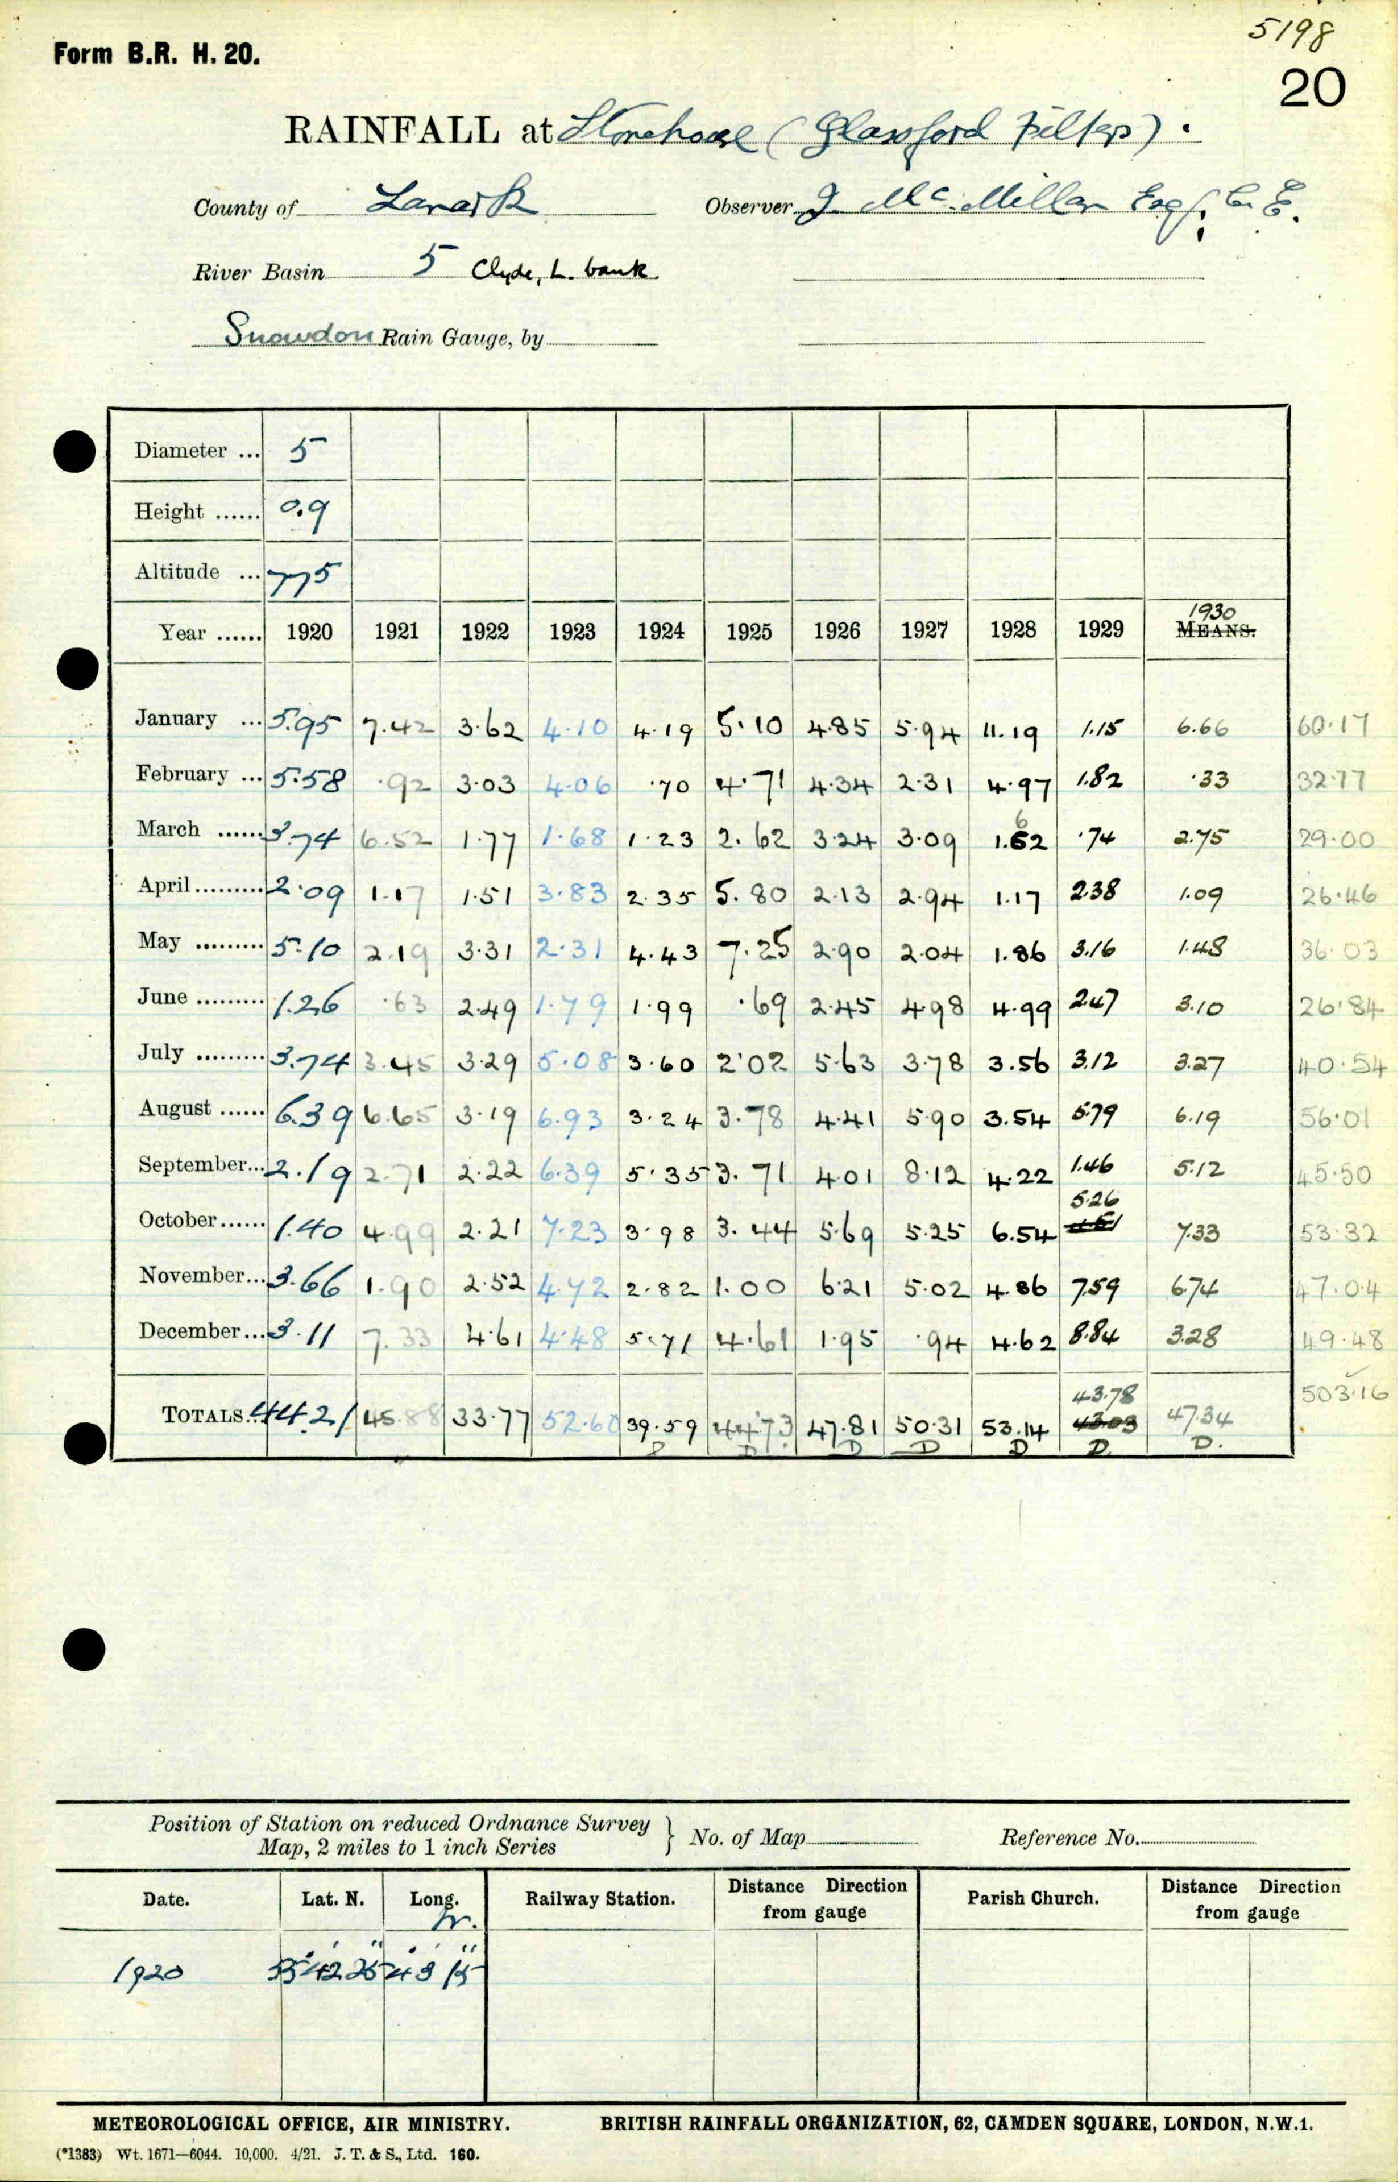 5198
Form B.R. H. 20.
20
RAINFALL at Stonehouse (Glassford Filters).
County of Lanark Observer J. McMillan Esq., C.E.
River Basin 5 Clyde, L. bank
Snowdon Rain Gauge, by
Diameter ... 5
Height ...... 0.9
Altitude ... 775
1930
Year ...... 1920 1921 1922 1923 1924 1925 1926 1927 1928 1929 MEANS.
January ... 5.95 7.42 3.62 4.10 4.19 5.10 4.85 5.94 11.19 1.15 6.66 60.17
February ... 5.58 .92 3.03 4.06 .70 4.71 4.34 2.31 4.97 1.82 .33 32.77
6
March ...... 3.74 6.52 1.77 1.68 1.23 2.62 3.24 3.09 1.62 .74 2.75 29.00
April ......... 2.09 1.17 1.51 3.83 2.35 5.80 2.13 2.94 1.17 2.38 1.09 26.46
May ......... 5.10 2.19 3.31 2.31 4.43 7.25 2.90 2.04 1.86 3.16 1.48 36.03
June ......... 1.26 .63 2.49 1.79 1.99 .69 2.45 4.98 4.99 2.47 3.10 26.84
July ......... 3.74 3.45 3.29 5.08 3.60 2.02 5.63 3.78 3.56 3.12 3.27 40.54
August ...... 6.39 6.65 3.19 6.93 3.24 3.78 4.41 5.90 3.54 5.79 6.19 56.01
September... 2.19 2.71 2.22 6.39 5.35 3.71 4.01 8.12 4.22 1.46 5.12 45.50
5.26
October...... 1.40 4.99 2.21 7.23 3.98 3.44 5.69 5.25 6.54 7.33 53.32
November... 3.66 1.90 2.52 4.72 2.82 1.00 6.21 5.02 4.86 7.59 6.74 47.04
December... 3.11 7.33 4.61 4.48 5.71 4.61 1.95 .94 4.62 8.84 3.28 49.48
43.78 503.16
TOTALS... 44.21 45.88 33.77 52.60 39.59 44.73 47.81 50.31 53.14 43.03 47.34
D D D D D D D.
Position of Station on reduced Ordnance Survey
Map, 2 miles to 1 inch Series } No. of Map Reference No.
Date. Lat. N. Long. W. Railway Station. Distance Direction from gauge Parish Church. Distance Direction from gauge
1920 55° 42' 25" 4° 3' 15"
METEOROLOGICAL OFFICE, AIR MINISTRY. BRITISH RAINFALL ORGANIZATION, 62, CAMDEN SQUARE, LONDON, N.W.1.
(*1383) Wt. 1671—6044. 10,000. 4/21. J. T. & S., Ltd. 160.